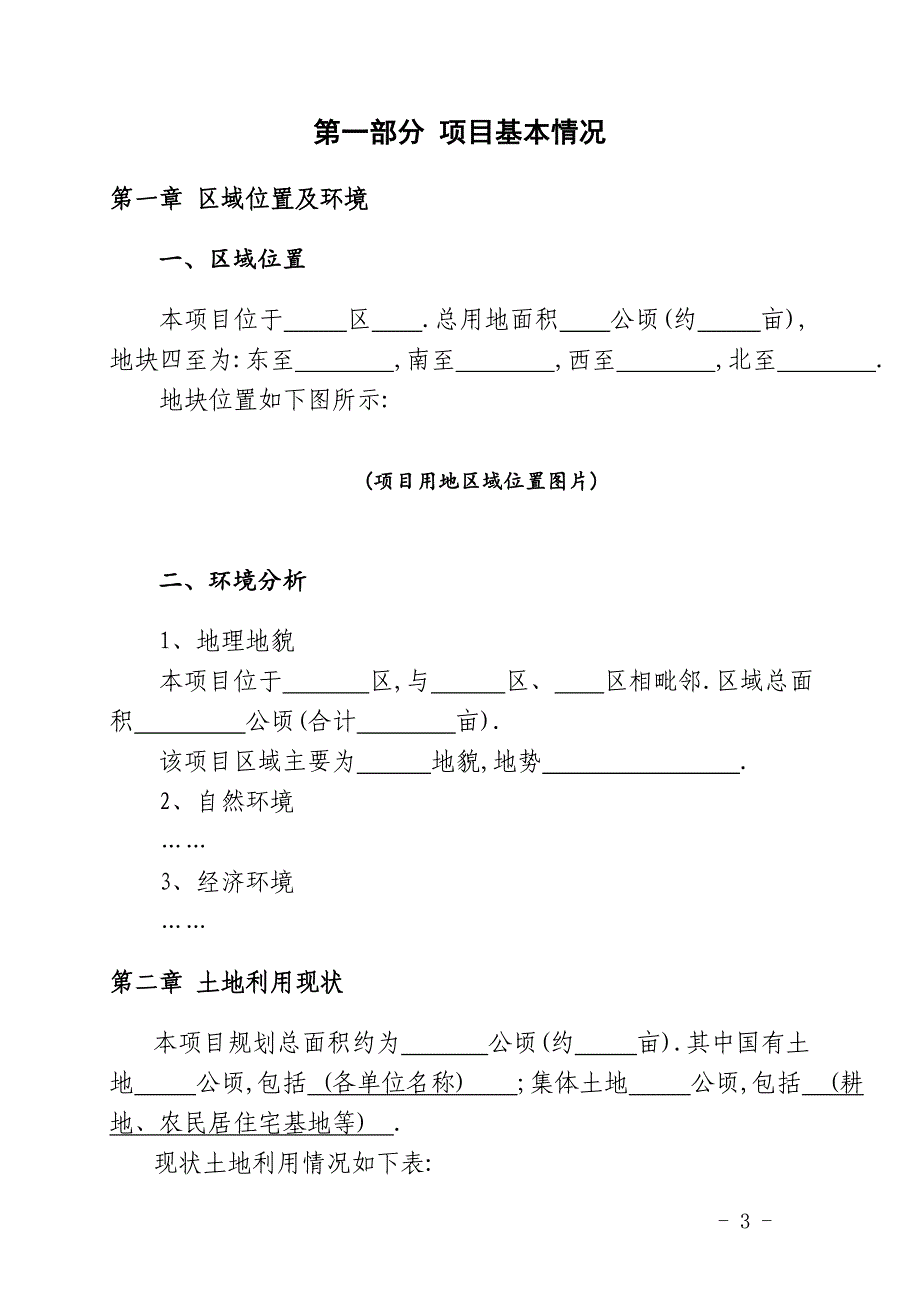 第一部分 项目基本情况
第一章 区域位置及环境
一、区域位置
本项目位于_____区____.总用地面积____公顷(约_____亩),
地块四至为:东至________,南至________,西至________,北至________.
地块位置如下图所示:
(项目用地区域位置图片)
二、环境分析
1、地理地貌
本项目位于_______区,与______区、____区相毗邻.区域总面
积_________公顷(合计________亩).
该项目区域主要为______地貌,地势________________.
2、自然环境
……
3、经济环境
……
第二章 土地利用现状
本项目规划总面积约为_______公顷(约_____亩).其中国有土
地_____公顷,包括 (各单位名称)____;集体土地_____公顷,包括__(耕
地、农民居住宅基地等)__.
现状土地利用情况如下表:
- 3 -